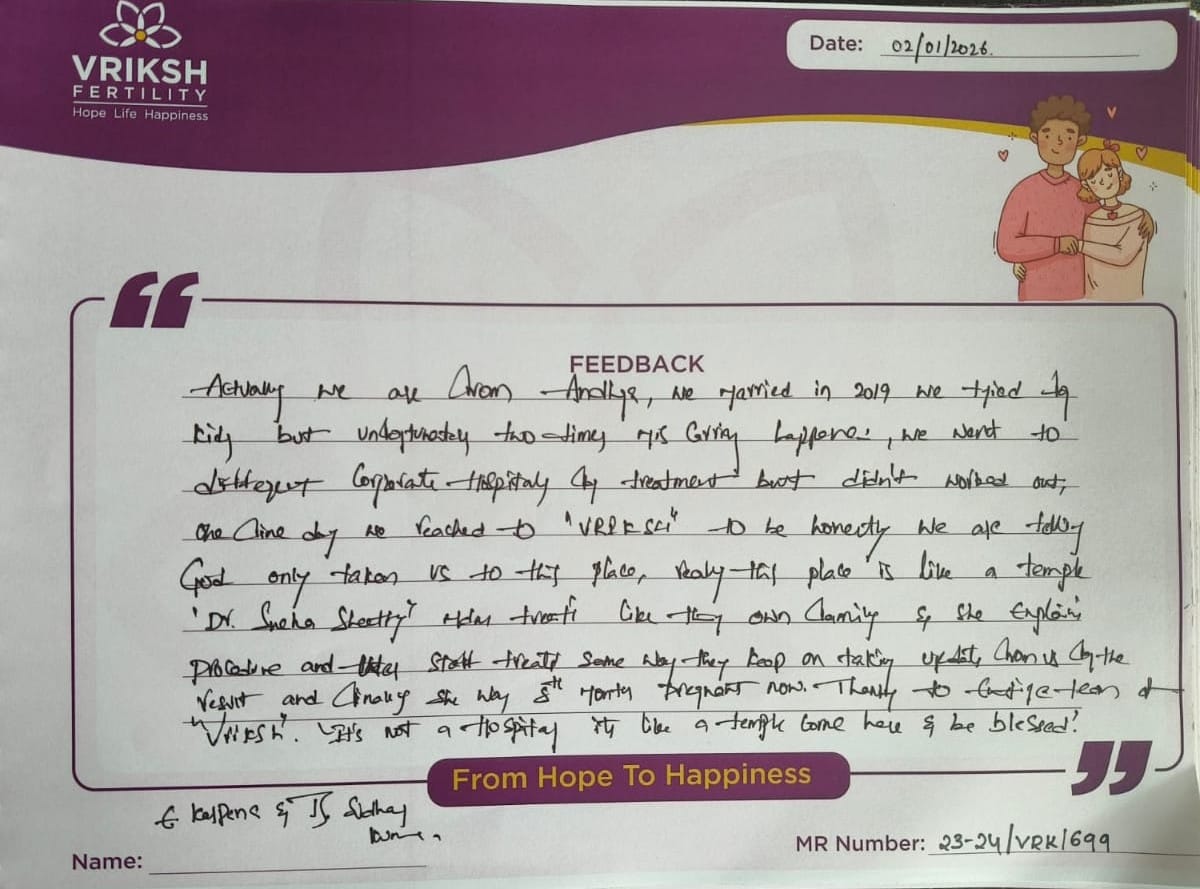 VRIKSH
FERTILITY
Hope Life Happiness
Date: 02/01/2026.
FEEDBACK
Actually we are from Andhra, we married in 2019 we tried for
kids but unfortunately two times mis carriag happened, we went to
different Corporate Hospitals for treatment but didn't worked out,
one fine day we reached to "VRIKSH" to be honestly we are telling
God only taken us to this place, realy this place is like a temple
'Dr. Sneha Shetty' treats like they own family & she Explains
procedure and staff treats same way they keep on taking updats from us for the
result and finally she was 8th month pregnant now. Thanks to entire team of
"Vriksh". It's not a Hospital its like a temple come here & be blessed!
From Hope To Happiness
& Sidhay
MR Number: 23-24/VRK/699
Name: